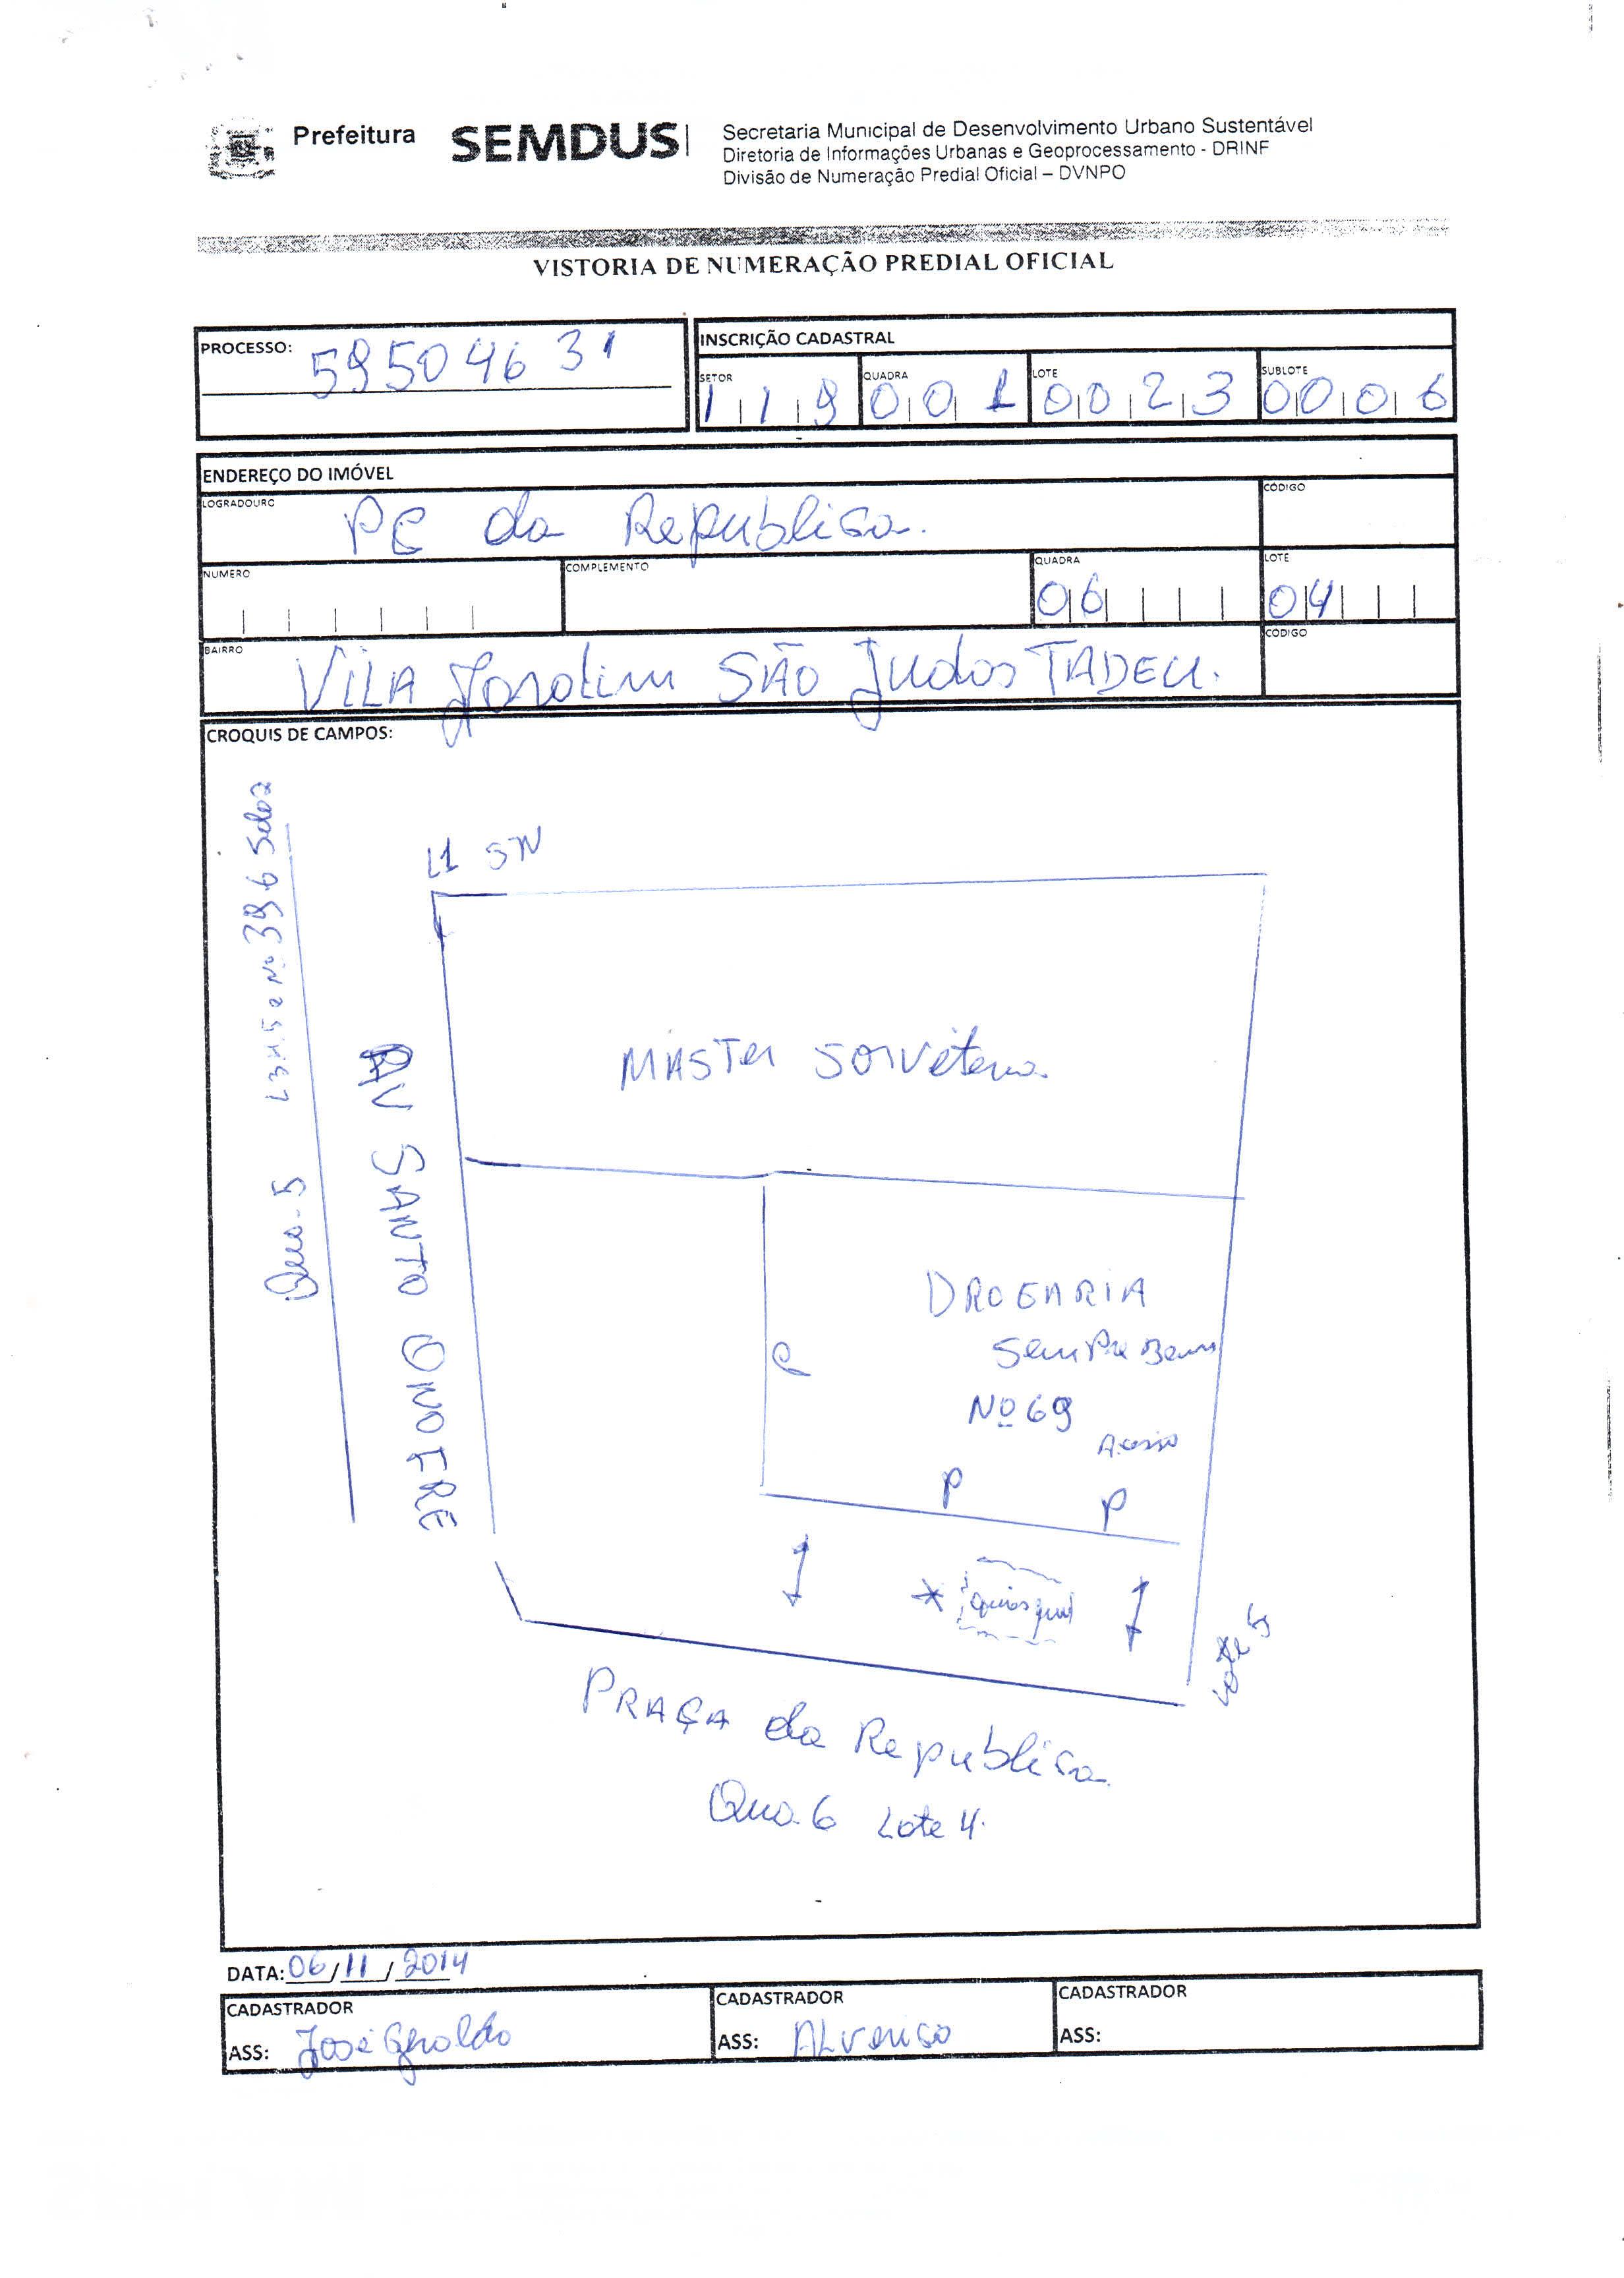 Prefeitura SEMDUS
Secretaria Municipal de Desenvolvimento Urbano Sustentável
Diretoria de Informações Urbanas e Geoprocessamento - DRINF
Divisão de Numeração Predial Oficial – DVNPO
VISTORIA DE NUMERAÇÃO PREDIAL OFICIAL
PROCESSO: 59504631
INSCRIÇÃO CADASTRAL
SETOR 119 QUADRA 001 LOTE 0023 SUBLOTE 0006
ENDEREÇO DO IMÓVEL
LOGRADOURO PÇ da Republica. CÓDIGO
NUMERO COMPLEMENTO QUADRA 06 LOTE 04
BAIRRO VILA Jardim SÃO Judas TADEU. CÓDIGO
CROQUIS DE CAMPOS:
L1 SN
Qua. 5 Nº 396
AV SANTO ONOFRE
MASTER Sorveteria
DROGARIA
Sempre Bem
Nº 69
Acesso
P
P P
* quiosque
Lote 5
PRAÇA da Republica
Qua. 6 Lote 4.
DATA: 06/11/2014
CADASTRADOR CADASTRADOR CADASTRADOR
ASS: José Geraldo ASS: ASS: